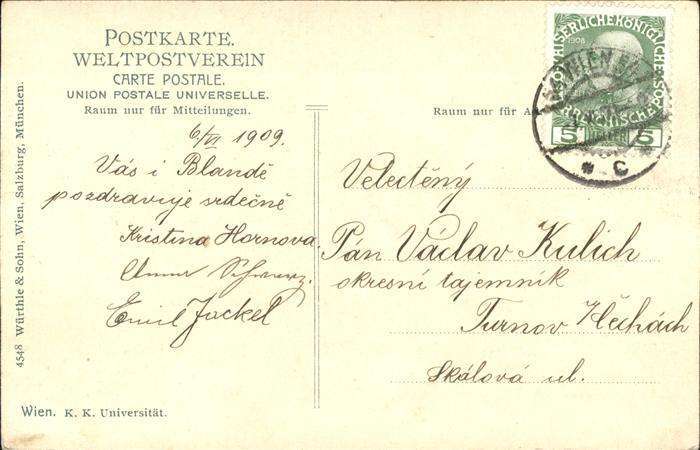 POSTKARTE.
WELTPOSTVEREIN
CARTE POSTALE.
UNION POSTALE UNIVERSELLE.
Raum nur für Mitteilungen.
6/VI 1909.
Vás i Blandě
pozdravuje srdečně
Kristina Hornova.
Emil Jackel
Wien. K. K. Universität.
4548 Würthle & Sohn, Wien, Salzburg, München.
Raum nur für
1908
5 5
WIEN
* C
Velectěný
Pán Václav Kulich
okresní tajemník
Turnov
Skálová ul.